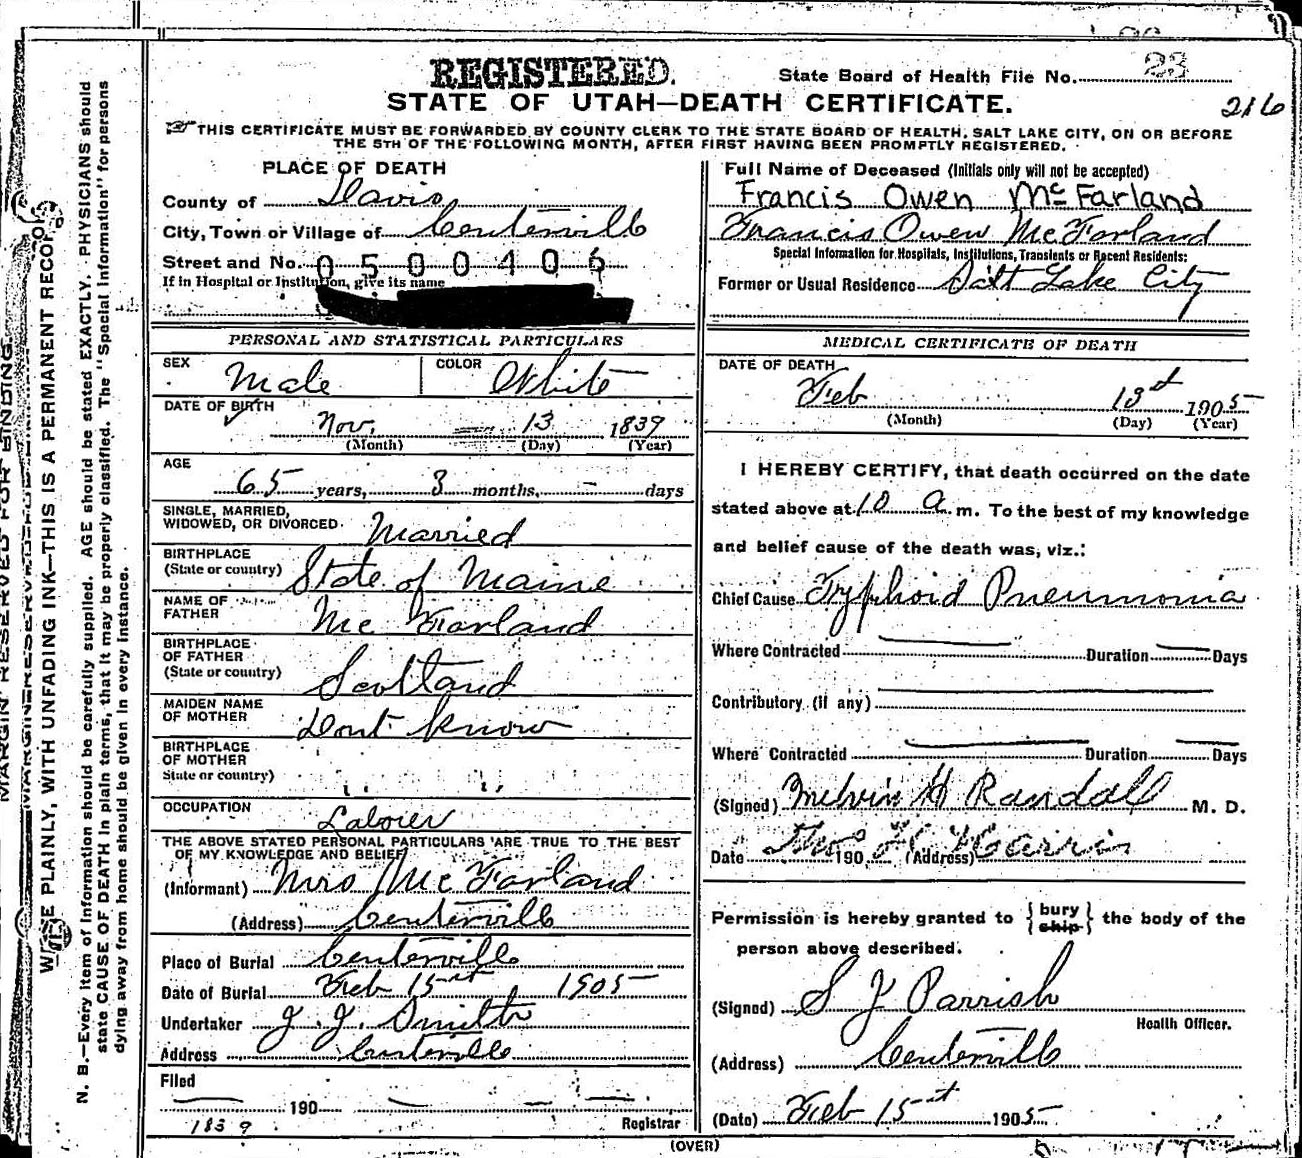 REGISTERED.
State Board of Health File No. 23
216
STATE OF UTAH—DEATH CERTIFICATE.
THIS CERTIFICATE MUST BE FORWARDED BY COUNTY CLERK TO THE STATE BOARD OF HEALTH, SALT LAKE CITY, ON OR BEFORE
THE 5TH OF THE FOLLOWING MONTH, AFTER FIRST HAVING BEEN PROMPTLY REGISTERED.
PLACE OF DEATH
County of Davis
City, Town or Village of Centerville
Street and No. 0500406
If in Hospital or Institution, give its name
Full Name of Deceased (Initials only will not be accepted)
Francis Owen McFarland
Francis Owen McFarland
Special Information for Hospitals, Institutions, Transients or Recent Residents:
Former or Usual Residence Salt Lake City
PERSONAL AND STATISTICAL PARTICULARS
SEX Male COLOR White
DATE OF BIRTH
Nov. 13 1839
(Month) (Day) (Year)
AGE
65 years, 3 months, - days
SINGLE, MARRIED,
WIDOWED, OR DIVORCED Married
BIRTHPLACE
(State or country) State of Maine
NAME OF
FATHER Mc Farland
BIRTHPLACE
OF FATHER
(State or country) Scottland
MAIDEN NAME
OF MOTHER Dont know
BIRTHPLACE
OF MOTHER
State or country)
OCCUPATION
Laborer
THE ABOVE STATED PERSONAL PARTICULARS ARE TRUE TO THE BEST
OF MY KNOWLEDGE AND BELIEF
(Informant) Mrs McFarland
(Address) Centerville
Place of Burial Centerville
Date of Burial Feb 15st 1905
Undertaker J. J. Smith
Address Centerville
Filed
190
1839 Registrar
MEDICAL CERTIFICATE OF DEATH
DATE OF DEATH
Feb 13st 1905
(Month) (Day) (Year)
I HEREBY CERTIFY, that death occurred on the date
stated above at 10 a m. To the best of my knowledge
and belief cause of the death was, viz.:
Chief Cause Typhoid Pneumonia
Where Contracted Duration Days
Contributory (if any)
Where Contracted Duration Days
(Signed) Melvin H Randall M. D.
Date Thos 190 F Harris (Address)
Permission is hereby granted to {bury ship} the body of the
person above described.
(Signed) S J Parrish
Health Officer.
(Address) Centerville
(Date) Feb 15st 1905
(OVER)
MARGIN RESERVED FOR BINDING
WRITE PLAINLY, WITH UNFADING INK—THIS IS A PERMANENT RECORD
N. B.—Every item of information should be carefully supplied. AGE should be stated EXACTLY. PHYSICIANS should
state CAUSE OF DEATH in plain terms, that it may be properly classified. The "Special Information" for persons
dying away from home should be given in every instance.